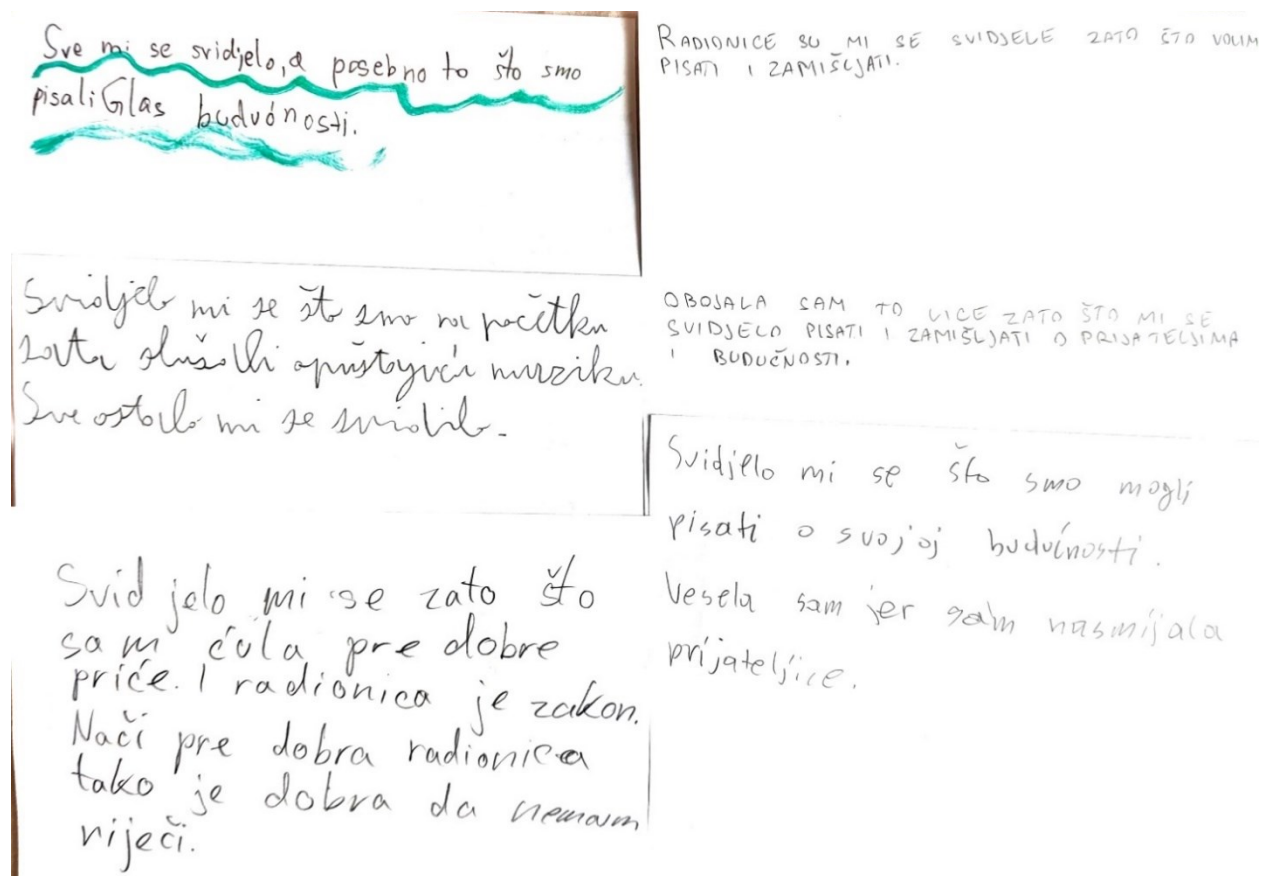 Sve mi se svidjelo, a posebno to što smo
pisali Glas budućnosti.
Svidjelo mi se što smo na početku
sata slušali opuštajuću muziku.
Sve ostalo mi se svidilo.
Svidjelo mi se zato što
sam ćula pre dobre
priće. I radionica je zakon.
Nači pre dobra radionica
tako je dobra da nemam
riječi.
RADIONICE SU MI SE SVIDJELE ZATO ŠTO VOLIM
PISATI I ZAMIŠLJATI.
OBOJALA SAM TO LICE ZATO ŠTO MI SE
SVIDJELO PISATI I ZAMIŠLJATI O PRIJATELJIMA
I BUDUČNOSTI.
Svidjelo mi se što smo mogli
pisati o svojoj budućnosti.
Vesela sam jer sam nasmijala
prijateljice.